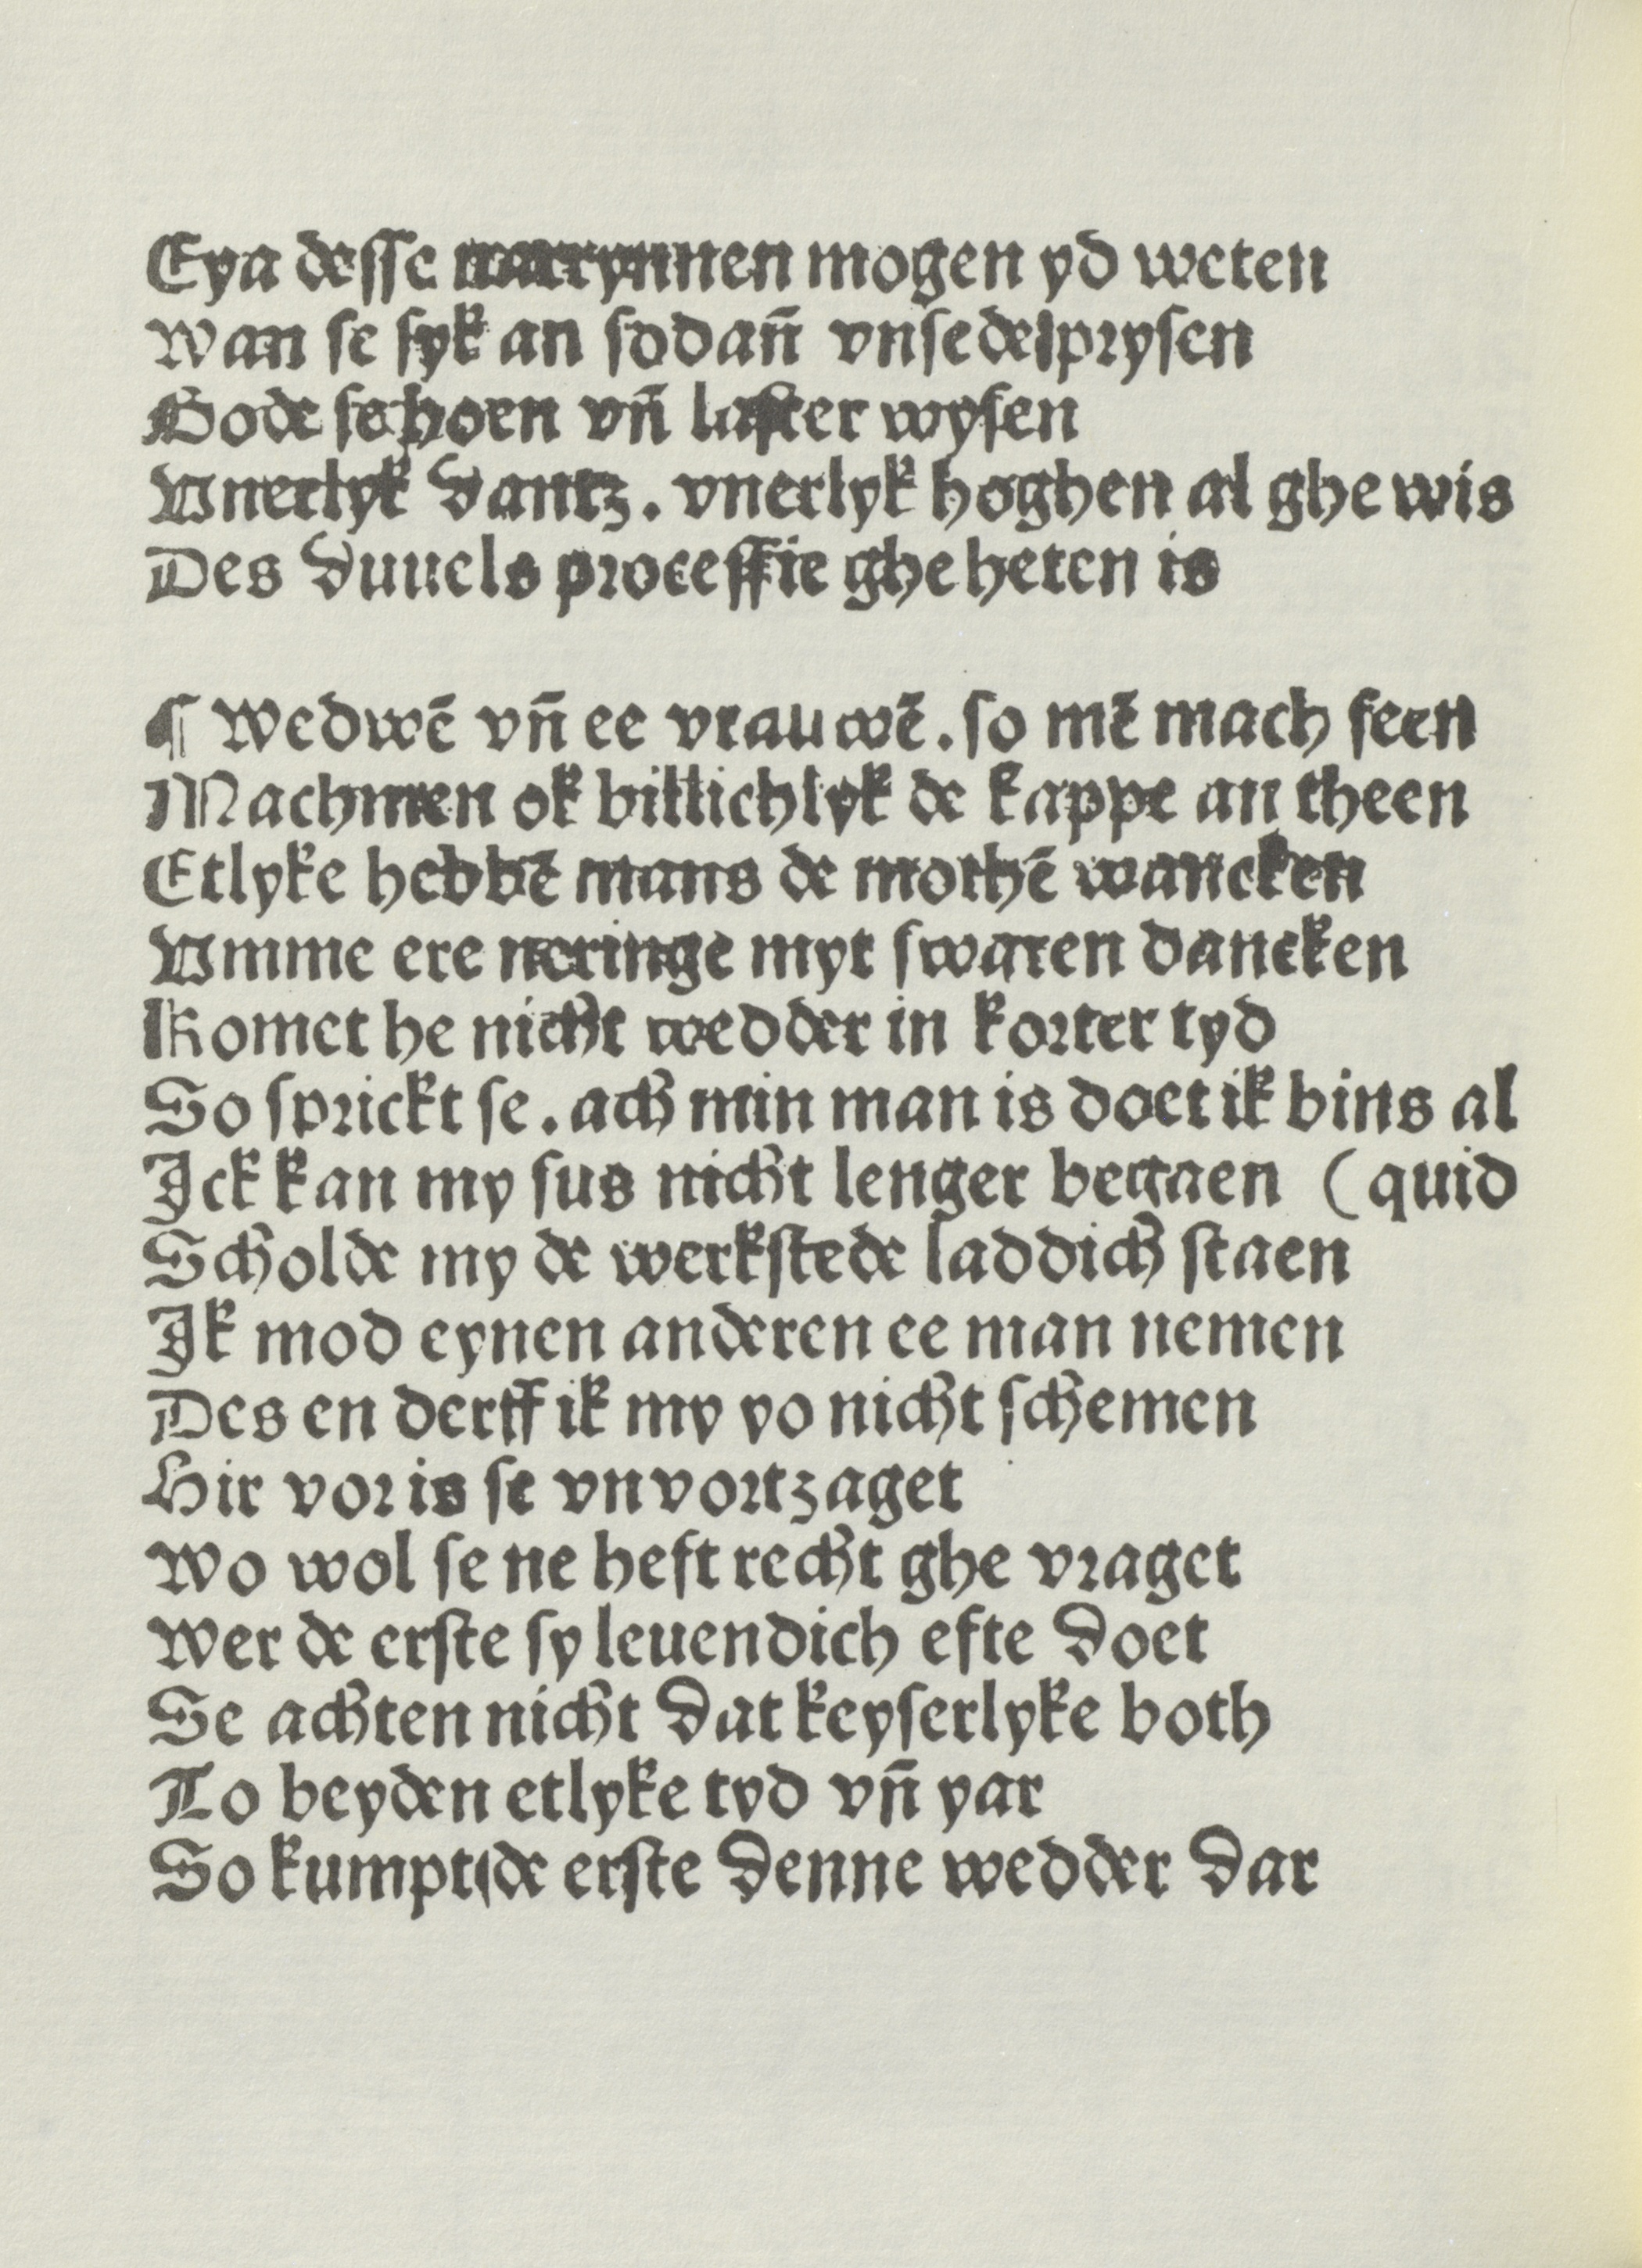 Eya desse narrynnen mogen yd weten
Wan se syk an sodañ vnsede prysen
Gode to hoen vñ laster wysen
Vnerlyk dantz. vnerlyk hoghen al ghe wis
Des duuels processie ghe heten is
¶ Wedwē vñ ee vrauwē. so mē mach seen
Machmen ok billichlyk de kappe an theen
Etlyke hebbē mans de mothē wancken
Vmme ere neringe myt swaren dancken
Komet he nicht wedder in korter tyd
So sprickt se. ach min man is doet ik bins al
Ick kan my sus nicht lenger began (quid
Scholde my de werkstede laddich staen
Ik mod eynen anderen ee man nemen
Des en derff ik my yo nicht schemen
Hir vor is se vnvortzaget
Wo wol se ne heft recht ghe vraget
Wer de erste sy leuendich efte doet
Se achten nicht dat keyserlyke both
To beyden etlyke tyd vñ yar
So kumpt de erste denne wedder dar